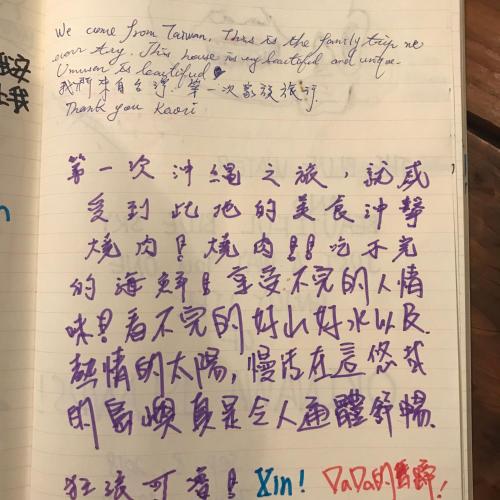 We come from Taiwan. This is the family trip we
ever try. This house is very beautiful and unique.
is beautiful
我們來自台灣,第一次家族旅行.
Thank you Kaori
第一次沖繩之旅,就感
受到此地的美食沖擊
燒肉!!燒肉!!!吃不完
的海鮮!!享受不完的人情
味!!看不完的好山好水以及.
熱情的太陽,慢活在這悠哉
的島嶼真是令人通體舒暢.
可 Xin! DaDa的